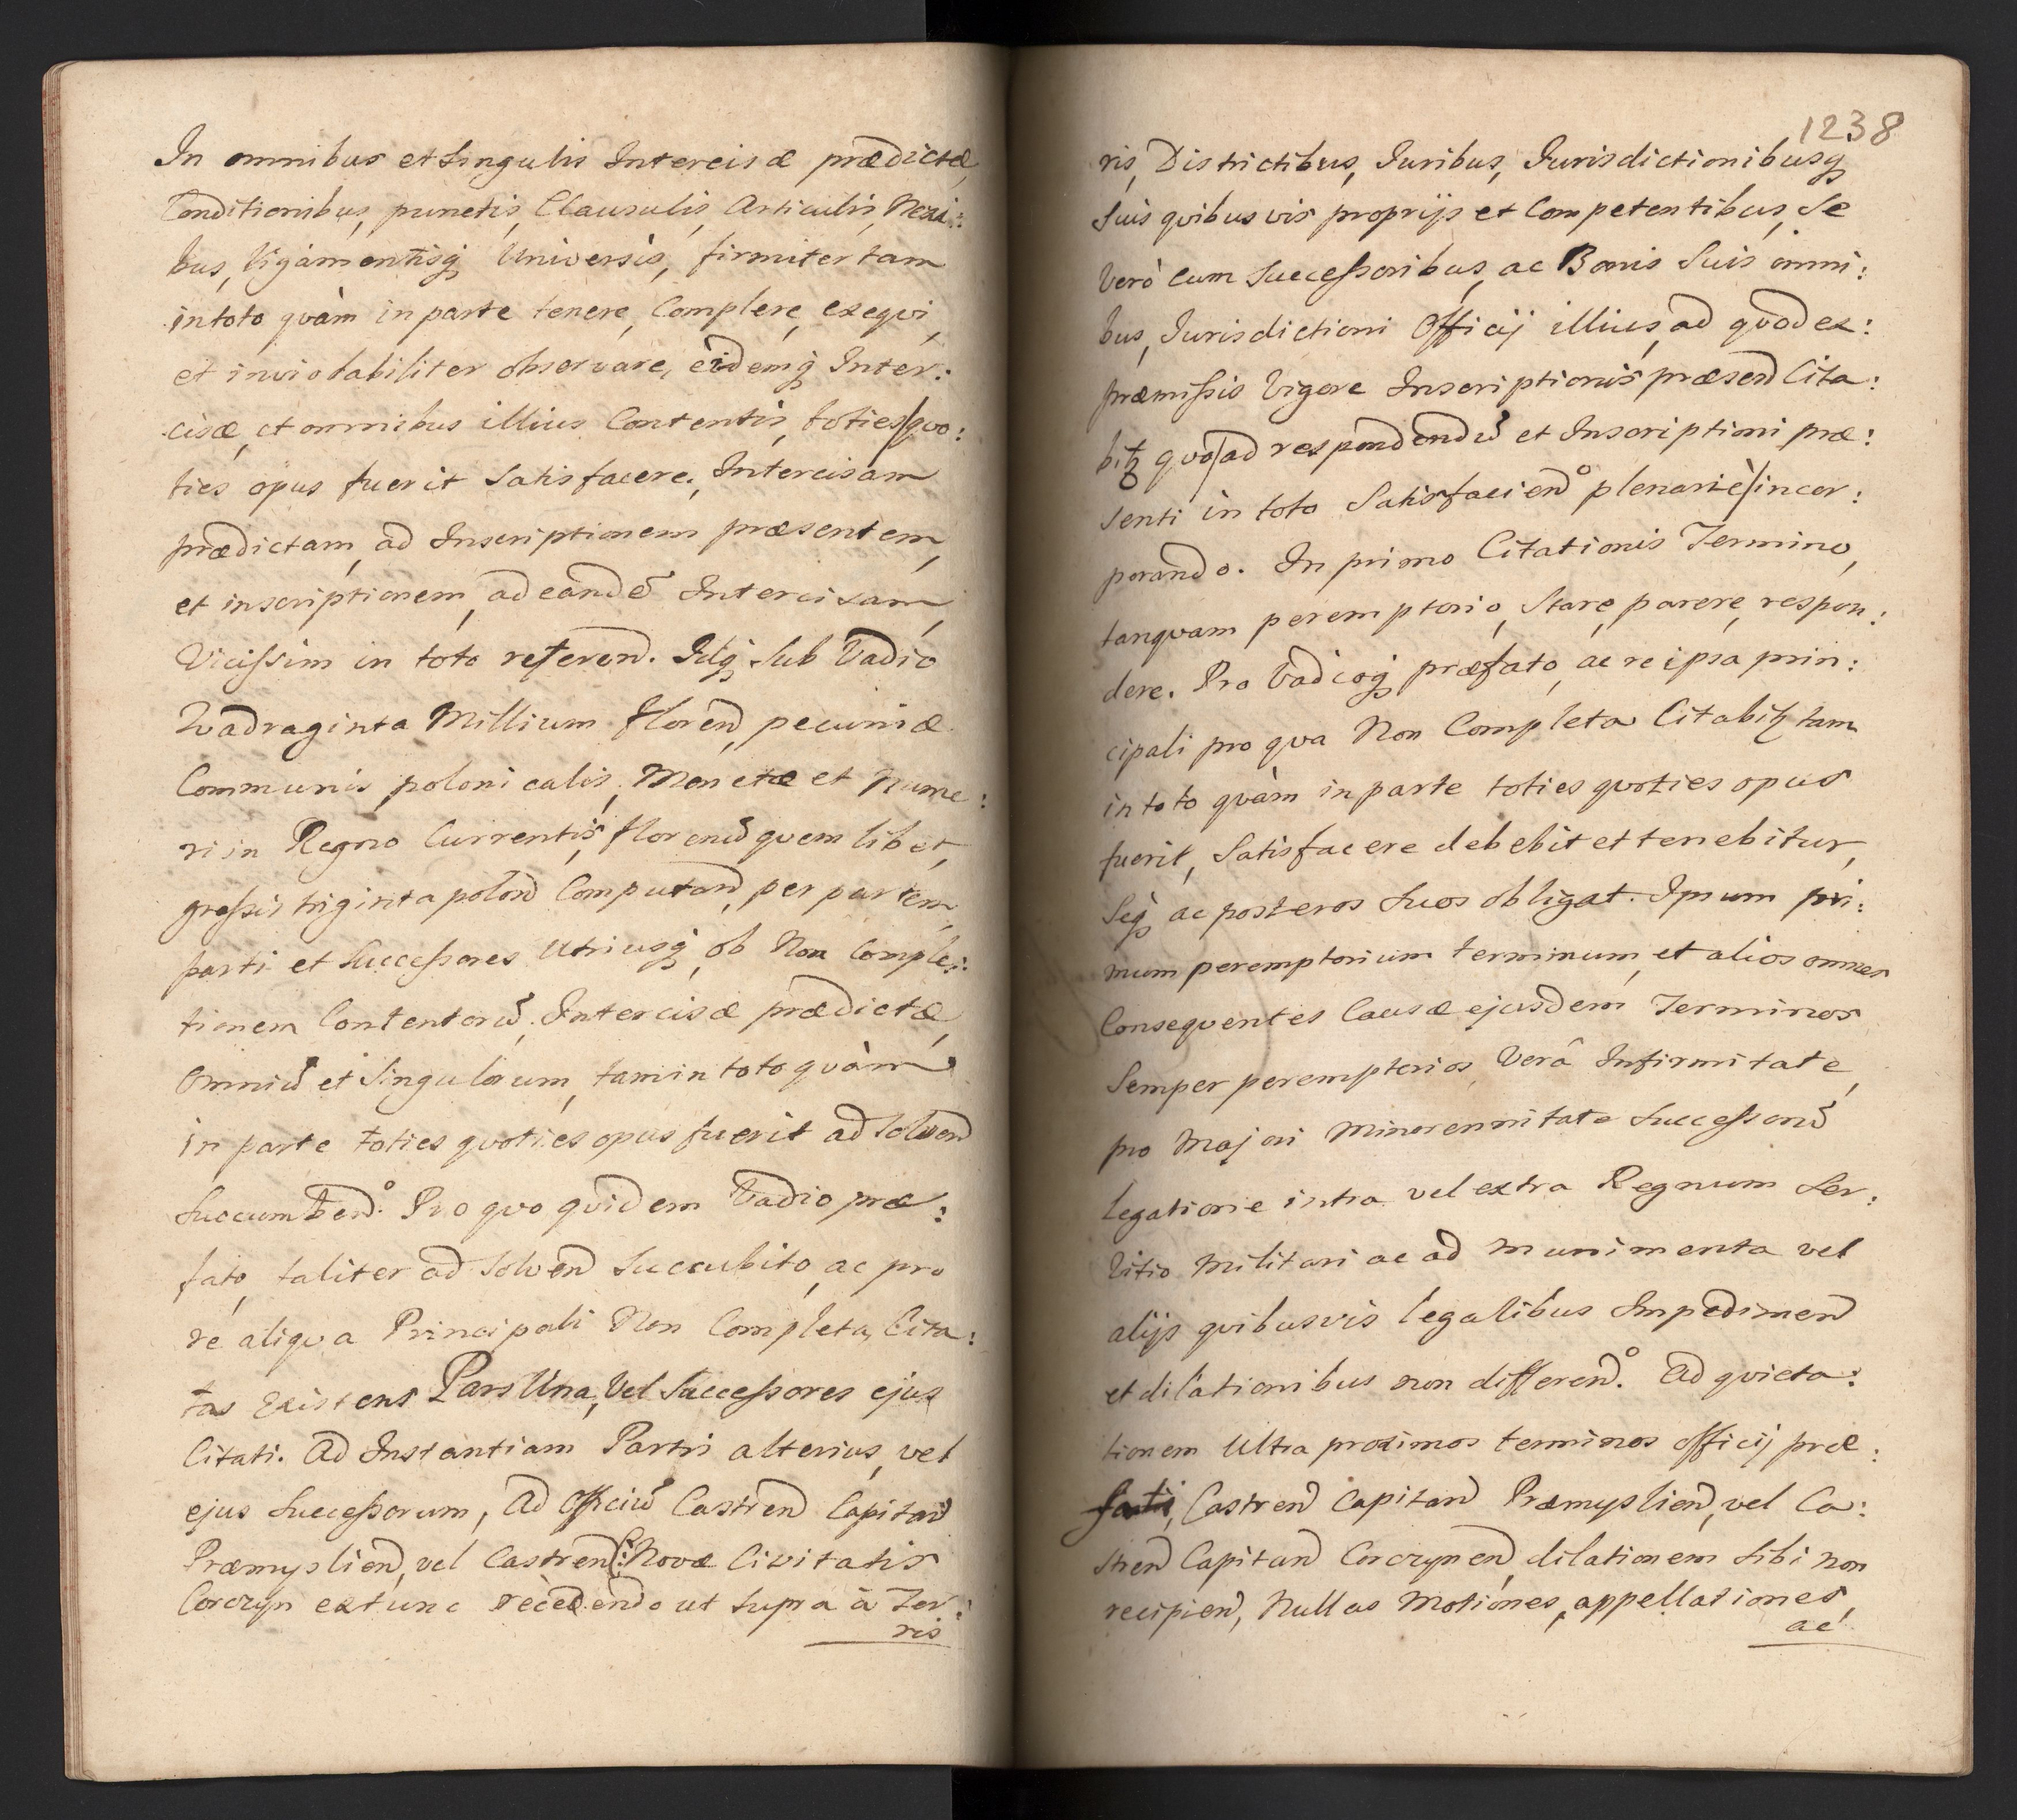 In omnibus et Singulis Intercisæ prædictæ,
Conditionibus, punctis, Clausulis, Articulis, Nexi:
bus, Ligamentisq Universis, firmiter tam
in toto qvàm in parte tenere, Complere, exeqvi,
et inviolabiliter observare, eidemq Inter:
cisæ, et omnibus illius Contentis, toties/qvo:
ties opus fuerit Satisfacere. Intercisam
prædictam, ad Inscriptionem præsentem,
et inscriptionem, ad eandē Intercisam,
Vicissim in toto referend. Idq Sub Vadio
Qvadraginta Millium floren, pecuniæ
Communis polonicalis, Monetæ et Nume:
ri in Regno Currentis, florenū qvemlibet,
grossis triginta polon Computand, per partem
parti et Successores Utriusq, ob Non Comple:
tionem Contentorū, Intercisæ prædictæ,
Omniū et Singulorum, tam in toto qvàm
in parte toties qvoties opus fuerit ad Solvend
Succumbend°. Pro qvo qvidem Vadio præ:
fato, taliter ad Solvend Succubito, ac pro
re aliqva Principali Non Completa, Cita:
tas Existens Pars Una, Vel Successores ejus
Citati. Ad Instantiam Partis alterius, vel
ejus Successorum, Ad Officiū Castren Capitan
Præmyslien, vel Castren: Novæ Civitatis
Corczyn extunc recedendo ut supra à Ter:
ris
1238
ris, Districtibus, Juribus, Jurisdictionibusq
Suis qvibusvis proprijs et Competentibus, Se
Verò cum Successoribus, ac Bonis Suis omni:
bus, Jurisdictioni Officij illius, ad qvod ex:
præmissis Vigore Inscriptionis præsen Cita:
bitz qvo/ad respondendū et Inscriptioni præ:
senti in toto Satisfaciend° plenariè/incor:
porando. In primo Citationis Termino,
tanqvam peremptorio, Stare, parere, respon:
dere. Pro Vadioq præfato, ac re ipsa prin:
cipali pro qva Non Completa Citabitz tam
in toto qvàm in parte toties qvoties opus
fuerit, Satisfacere debebit et tenebitur,
Seq ac posteros Suos obligat. Ipsum pri:
mum peremptorium terminum, et alios omnes
Conseqventes Causæ ejusdem Terminos
Semper peremptorios, Verâ Infirmitate,
pro Majori Minorennitate Successorū
legatione intra vel extra Regnum Ser:
Vitio Militari ac ad munimenta vel
alijs qvibusvis legalibus Impedimen
et dilationibus non differend°. Ad qvieta:
tionem Ultra proximos terminos officij præ:
fati, Castren Capitan Præmyslien, vel Ca:
stren Capitan Corczynen, dilationem Sibi non
recipien, Nullas Motiones, appellationes,
ac